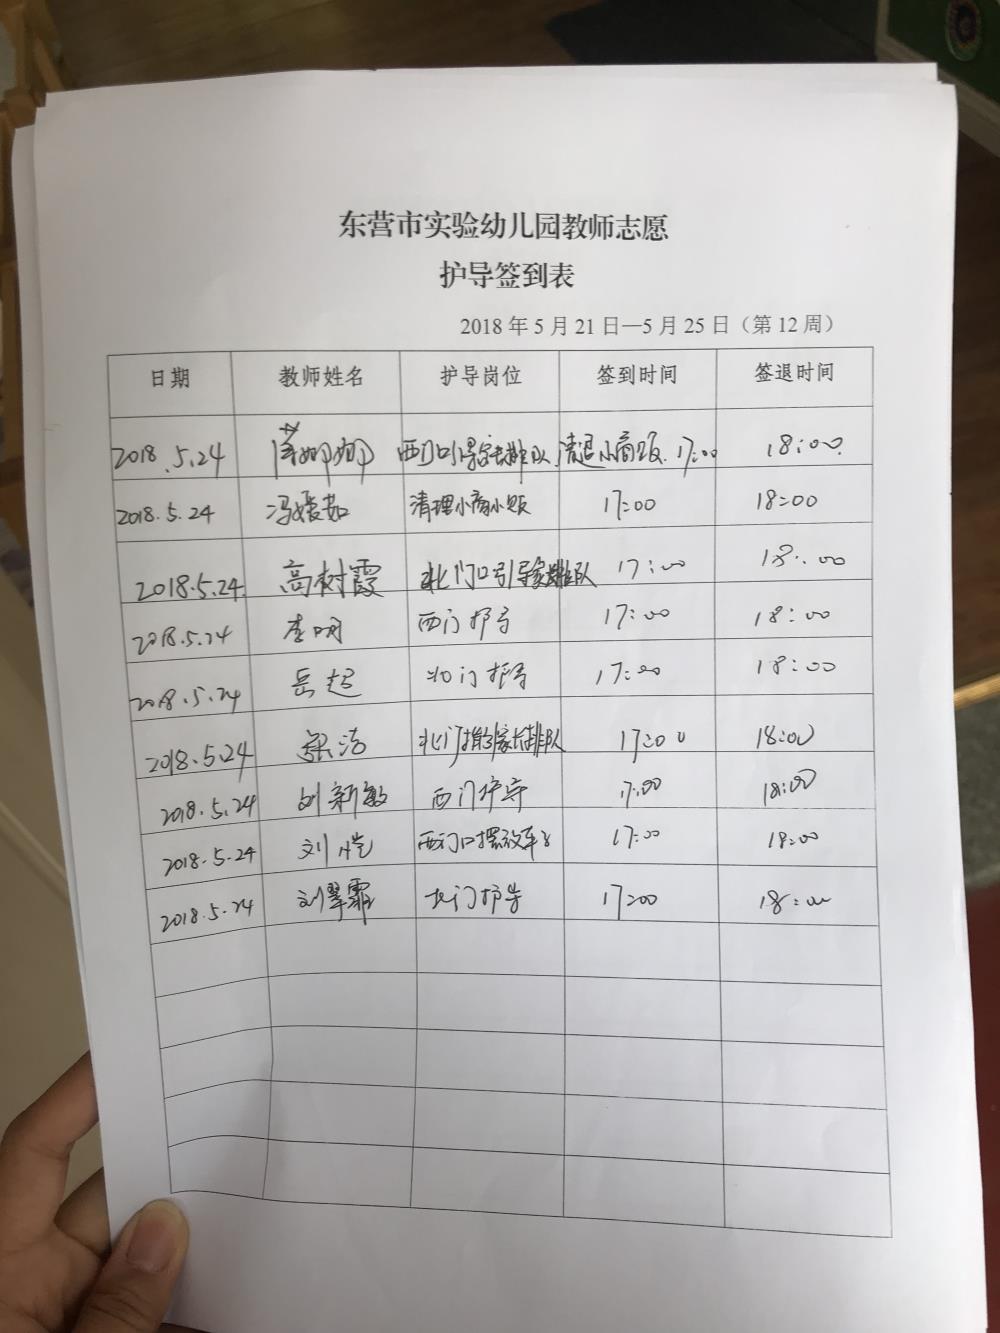 东营市实验幼儿园教师志愿
护导签到表
2018 年 5 月 21 日—5 月 25 日（第 12 周）
日期 教师姓名 护导岗位 签到时间 签退时间
2018.5.24 娜娜 西门口引导家长排队,清退小商贩. 17:00 18:00
2018.5.24 冯媛茹 清理小商小贩 17:00 18:00
2018.5.24 高树霞 北门口引导家长排队 17:00 18:00
2018.5.24 李明 西门护导 17:00 18:00
2018.5.24 岳超 北门护导 17:00 18:00
2018.5.24 梁洁 北门指引家长排队 17:00 18:00
2018.5.24 刘新敏 西门护导 17:00 18:00
2018.5.24 刘恺 西门口摆放车 17:00 18:00
2018.5.24 刘翠霏 北门护导 17:00 18:00